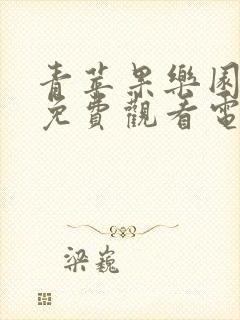 青苹果樂園
免費觀看電
梁巍